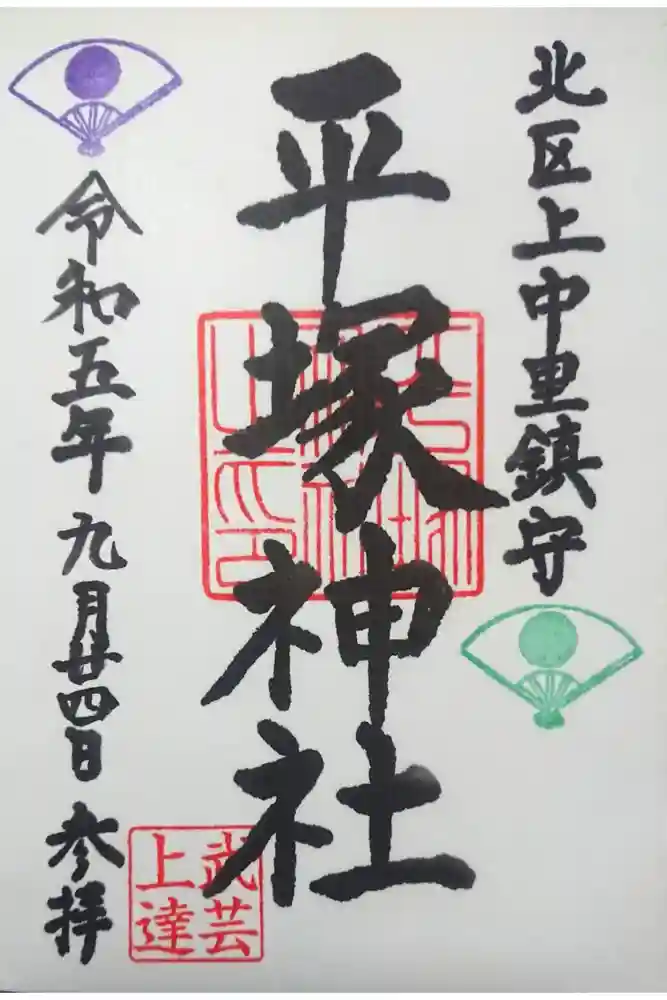 北区上中里鎮守
平塚神社
武芸
上達
令和五年九月廿四日参拝